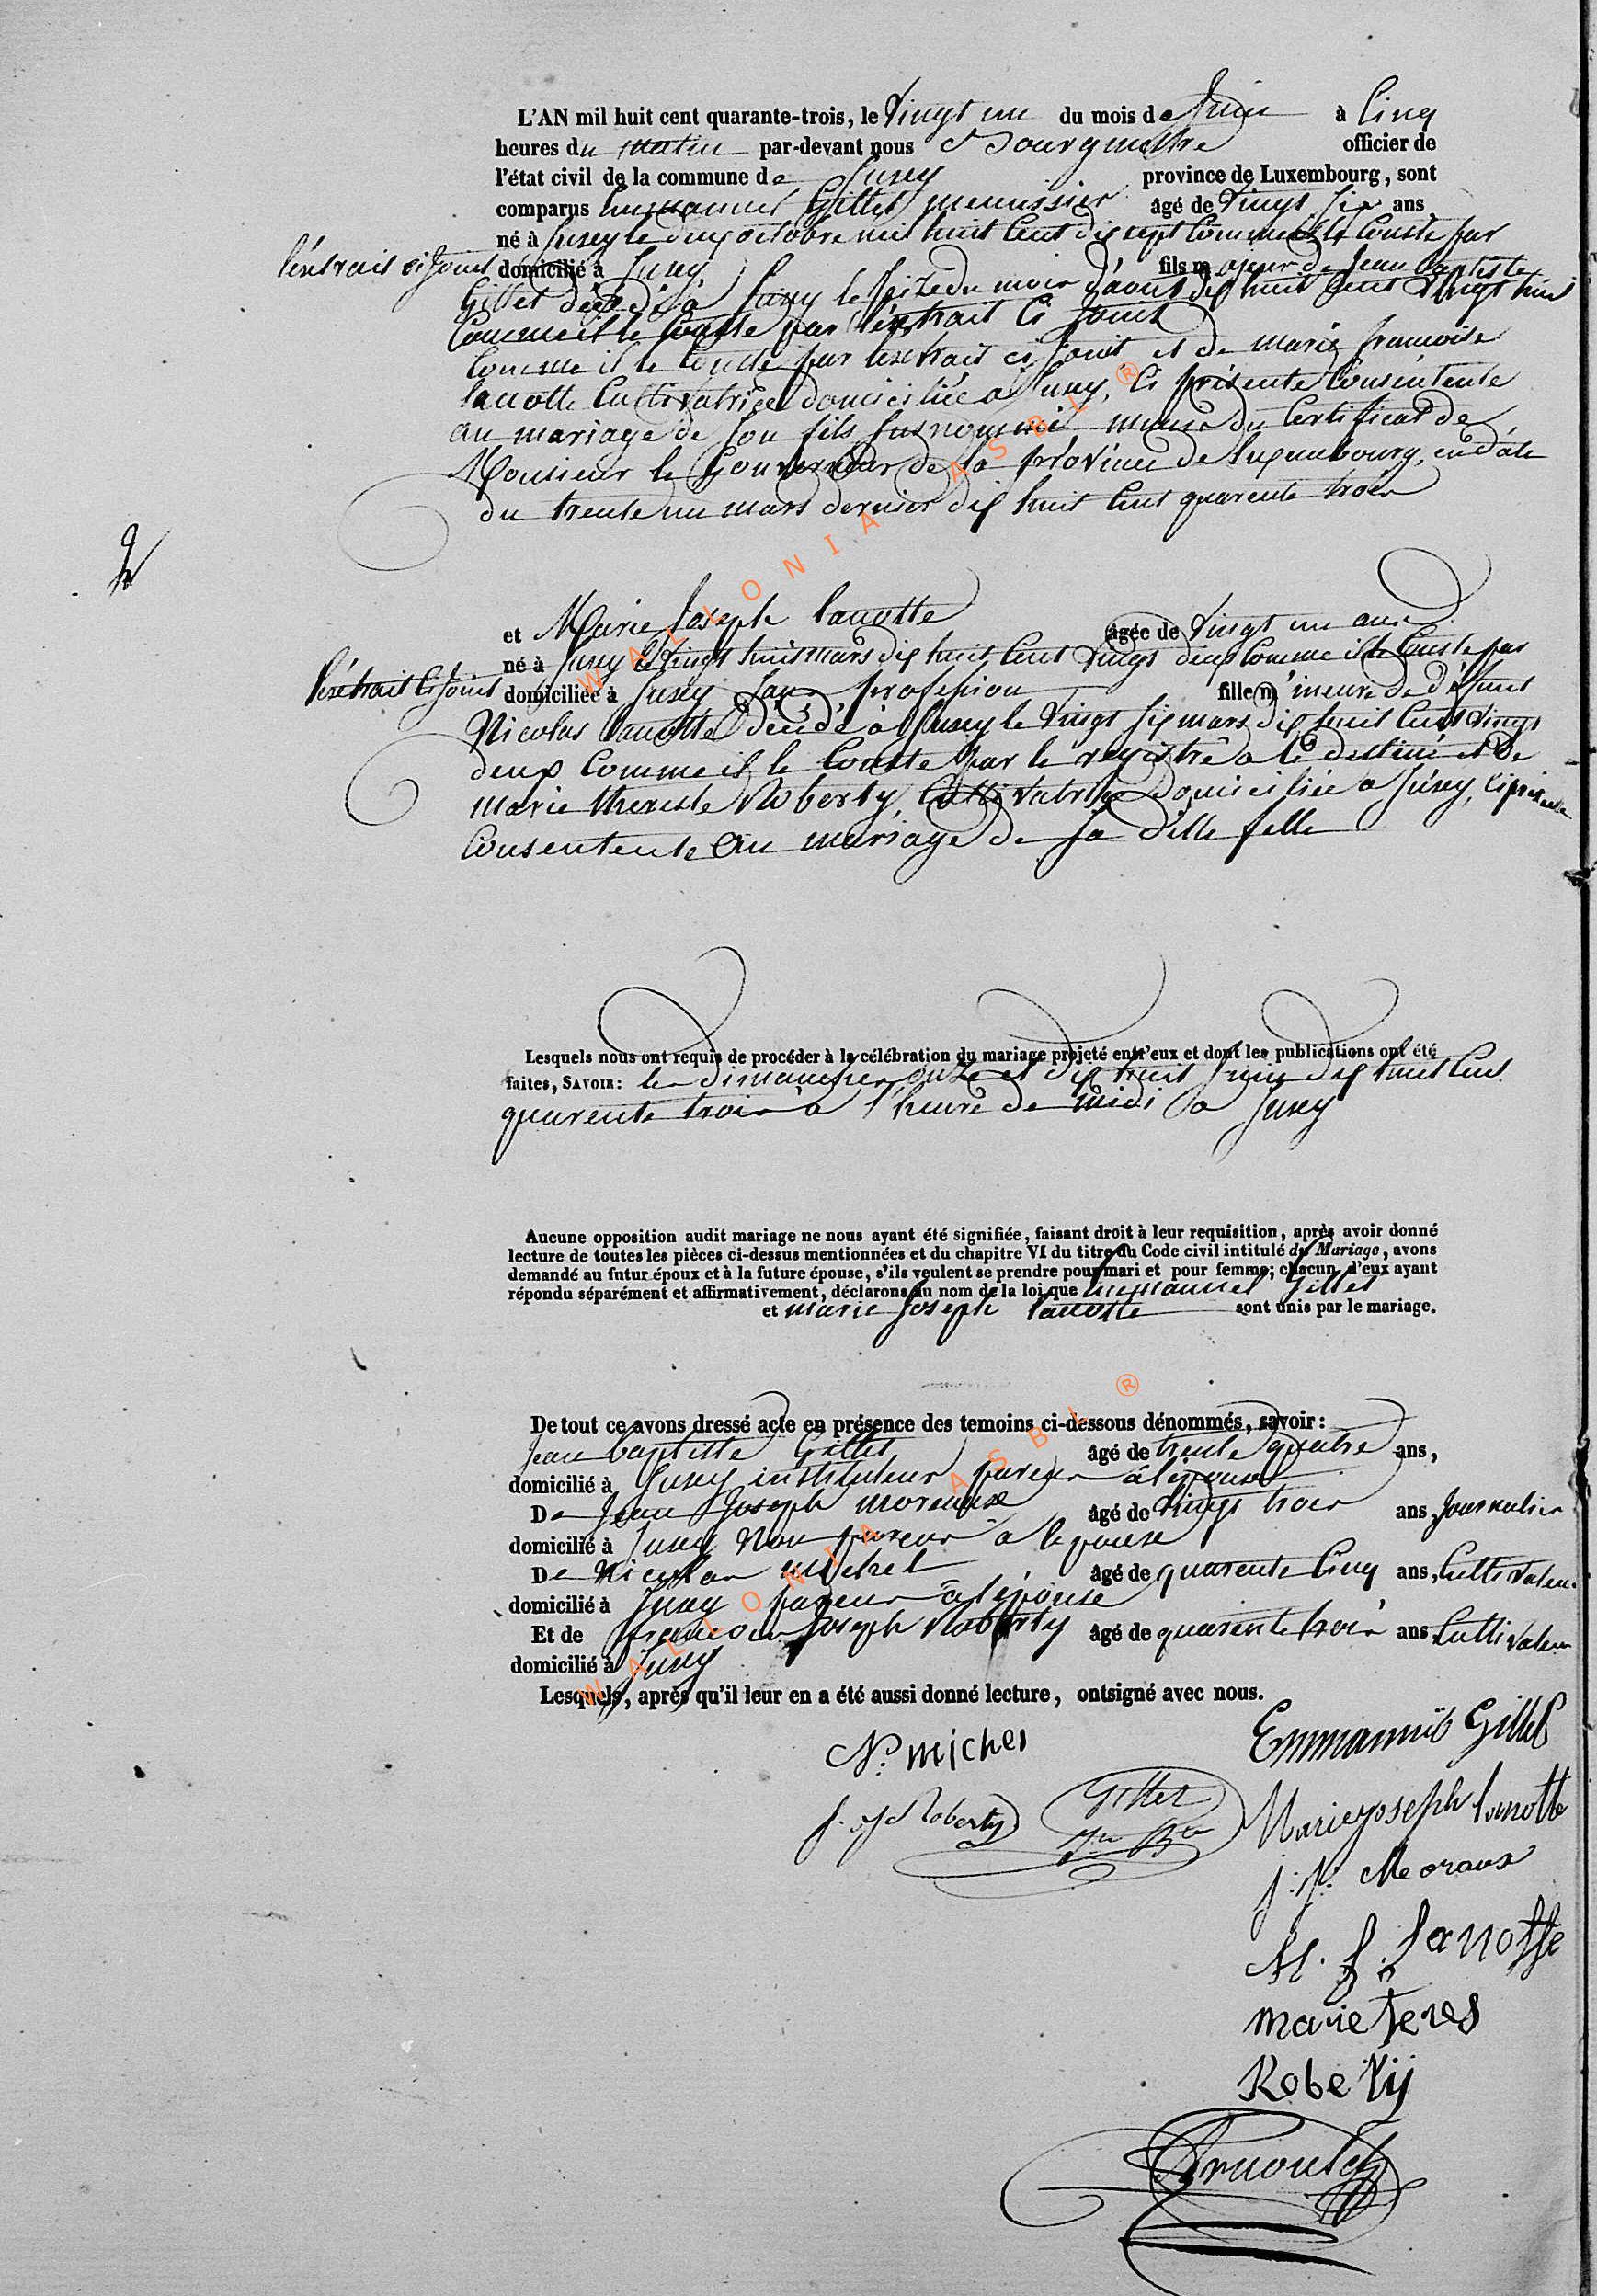 L'AN mil huit cent quarante-trois, le Vingt un du mois de Juin à Cinq
heures du matin par-devant nous Bourgmestre officier de
l'état civil de la commune de Juzey province de Luxembourg, sont
comparus Emmanuel Gillet menuisier âgé de Vingt six ans
né à Juzey le dix octobre mil huit Cent dix sept Comme il le Conste par
l'extrait ci Joint domicilié à Juzey fils majeur de Jean Baptiste
Gillet décédé à Juzey le seize du mois d'aout dix huit Cent Vingt huit
Comme il le Conste par l'extrait Ci Joint
Comme il le Conste par l'extrait ci Joint et de marie francoise
lanotte Cultivatrice domiciliée a Juzey, Ci présente Consentente
au mariage de son fils susnommé muni du Certificat de
Monsieur le Gouverneur de la province de luxembourg, en date
du trente un mars dernier dix huit Cent quarente trois
et Marie Joseph lanotte âgée de Vingt un ans
né à Juzey le Vingt huit mars dix huit Cent Vingt deux Comme il le Conste par
l'extrait Ci Joint domiciliée à Juzey sans profession fille mineure de défunt
Nicolas lanotte décédé à Juzey le Vingt six mars dix huit Cent Vingt
deux Comme il le Conste par le registre a le destiné et De
marie thereste Roberty, Cultivatrice domiciliée a Juzey, Ci présente
Consentente au mariage de sa dille fille
Lesquels nous ont requis de procéder à la célébration du mariage projeté entr'eux et dont les publications ont été
faites, SAVOIR: les dimanches onze et dix huit Juin dix huit Cent
quarente trois a l'heure de midi a Juzey
Aucune opposition audit mariage ne nous ayant été signifiée, faisant droit à leur requisition, après avoir donné
lecture de toutes les pièces ci-dessus mentionnées et du chapitre VI du titre du Code civil intitulé du Mariage, avons
demandé au futur époux et à la future épouse, s'ils veulent se prendre pour mari et pour femme; chacun d'eux ayant
répondu séparément et affirmativement, déclarons au nom de la loi que Emmanuel Gillet
et marie Joseph lanotte sont unis par le mariage.
De tout ce avons dressé acte en présence des temoins ci-dessous dénommés, savoir:
Jean baptiste Gillet âgé de trente quatre ans,
domicilié à Juzey instituteur pareur à l'épouse
De Jean Joseph moreaux âgé de Vingt trois ans, Journalier
domicilié à Juzey Non pareur à l'epouse
De Nicolas michel âgé de quarente Cinq ans, Cultivateur
domicilié à Juzey pareur à l'épouse
Et de francois Joseph Roberty âgé de quarente trois ans, Cultivateur
domicilié à Juzey
Lesquels, après qu'il leur en a été aussi donné lecture, ont signé avec nous.
N. michel
Emmanuel Gillet
f. J Roberty
Gillet
Jn Bte
Marie joseph lanotte
j. j. Moraux
M. f. lanotte
marie teres
Roberty
Arnould
WALLONIA ASBL ®
WALLONIA ASBL ®